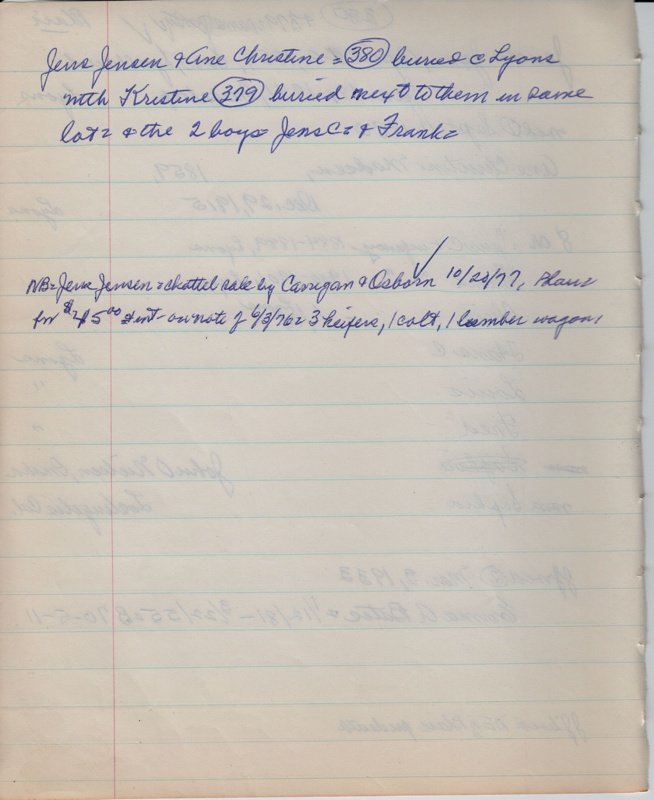 Jens Jensen & Ane Christine = 380 buried c Lyons
with Kristine 379 buried next to them in same
lot = & the 2 boys = Jens C = & Frank =
NB = Jens Jensen = chattel sale by Carrigan & Osborn ✓ 10/20/77,
for $ 5 00 & int - on note of 6/3/76 = 3 heifers, 1 colt, 1 lumber wagon,